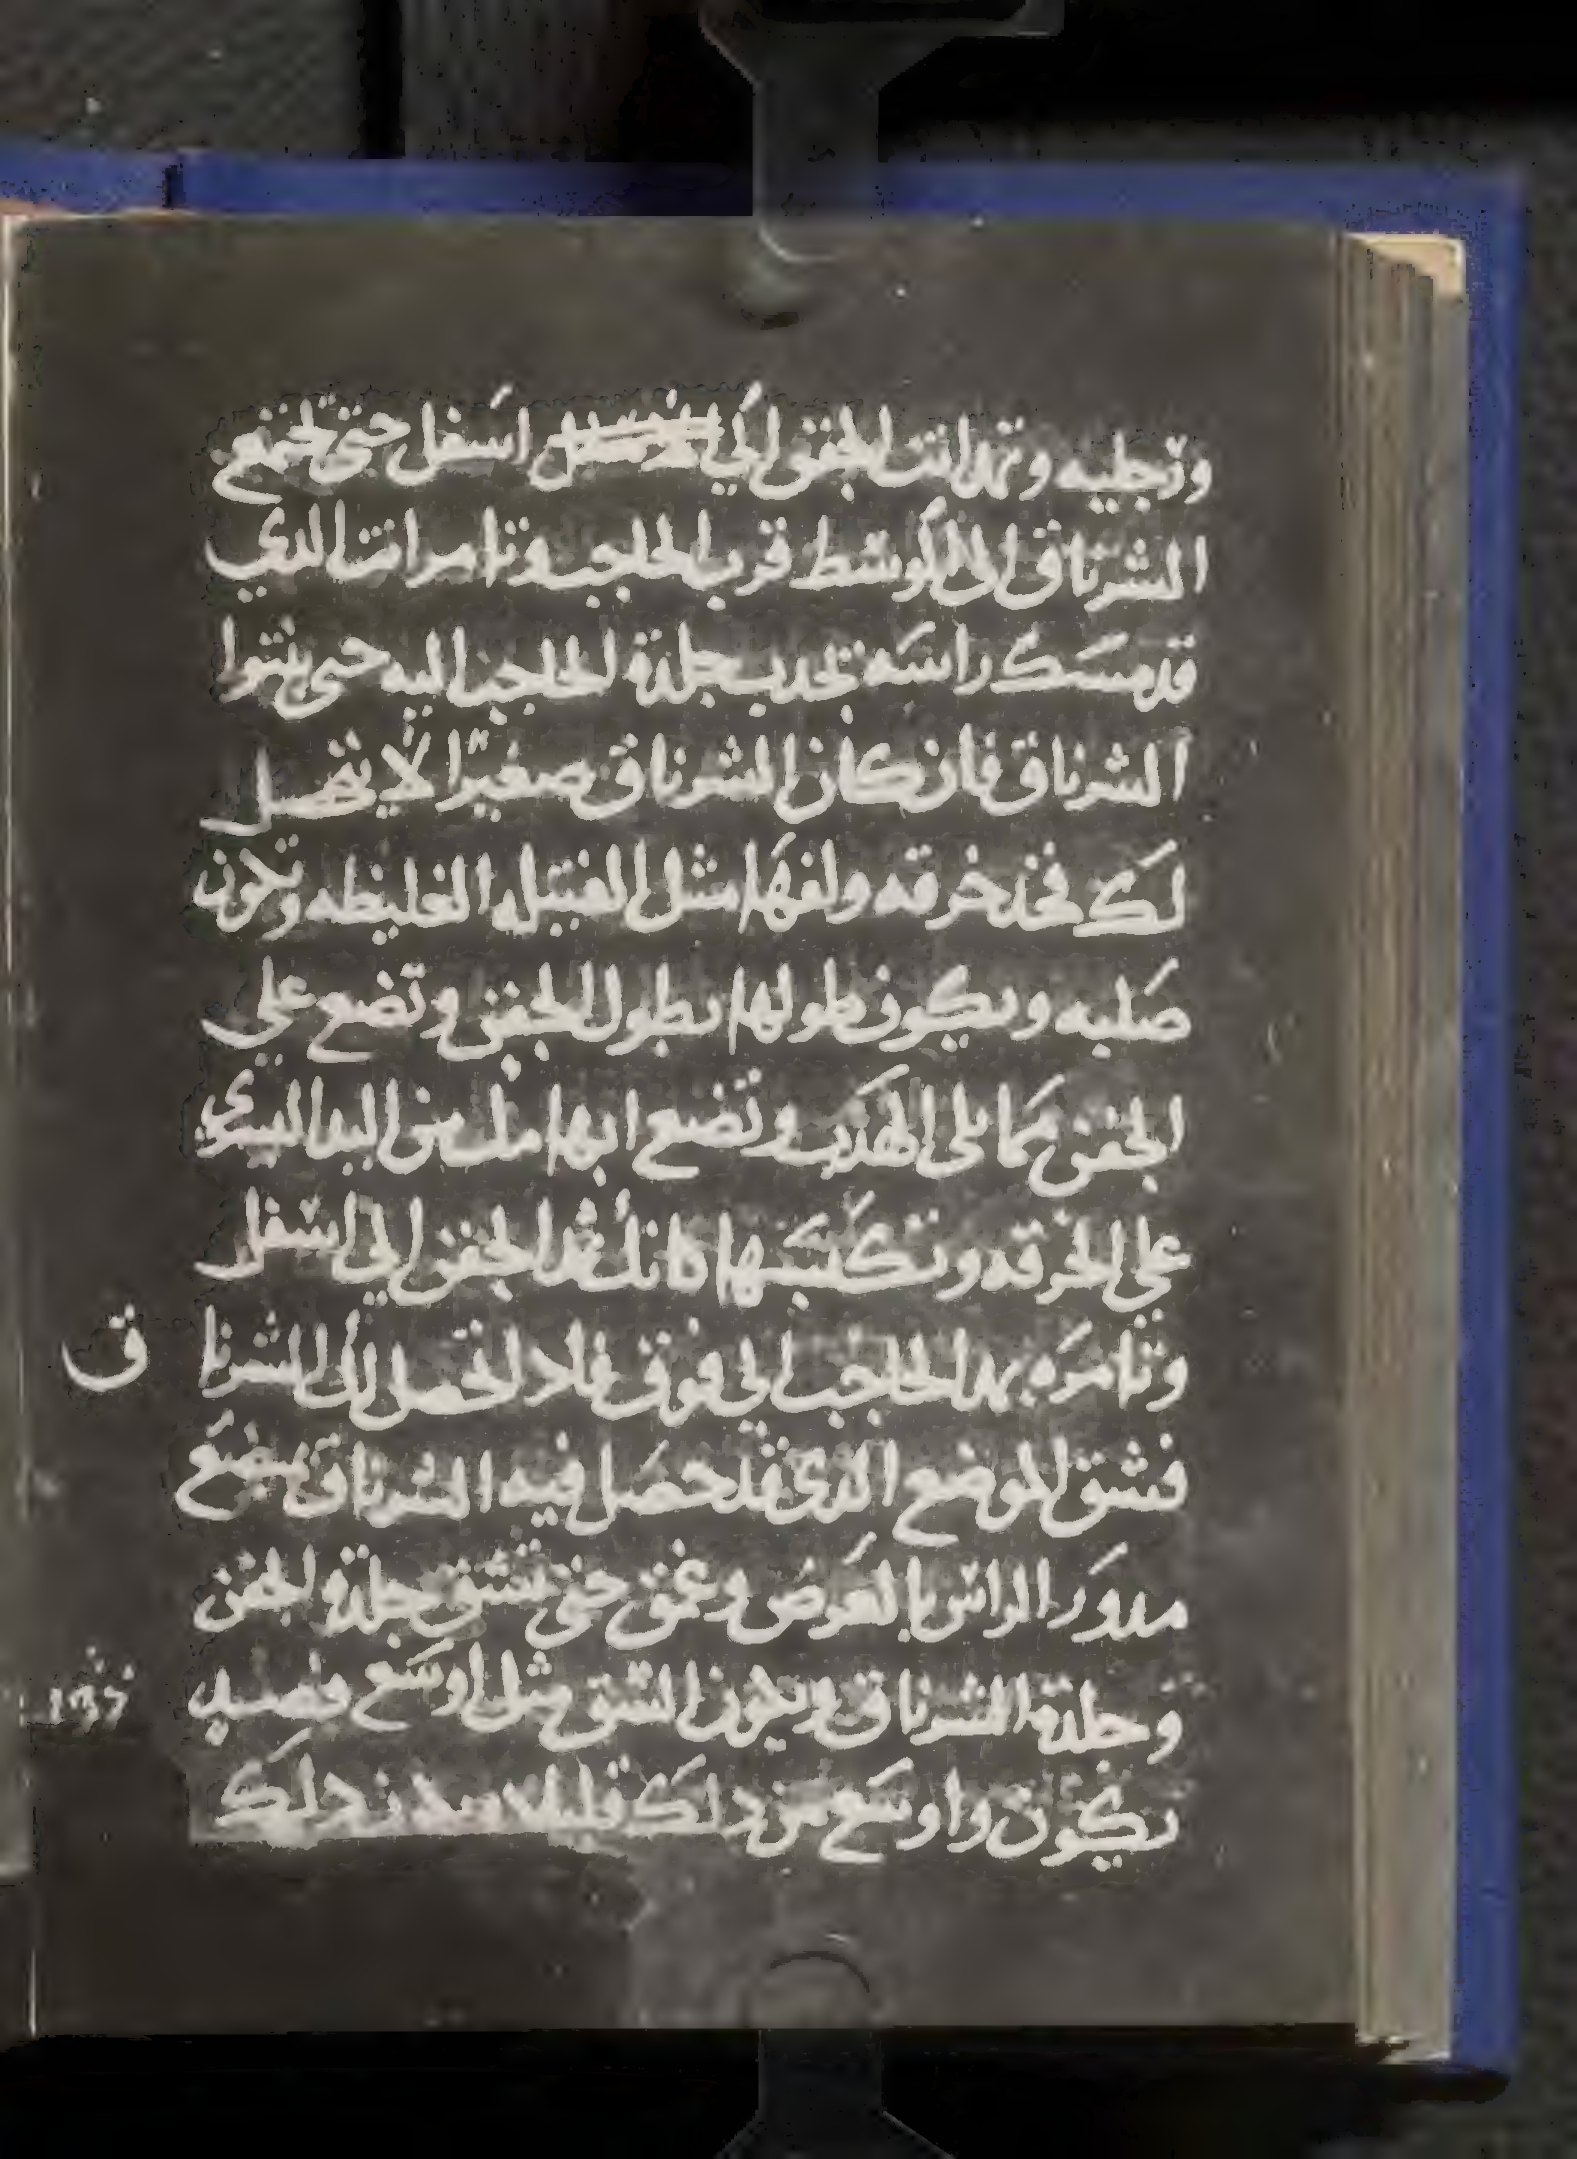 ورجليه وتمد انت الجفن الي اسفل حتي يجتمع
الشرناق الي الوسط قرب الحاجب وتامر انت الدي
قد مسك راسه يجدب جلدة الحاجب اليه حتي ينتوا
الشرناق فان كان الشرناق صغيرا لا يتحصل
لك فخد خرقه ولفها مثل الفتيله الغليظه وتكون
صلبه ويكون طولها بطول الجفن وتضع علي
الجفن مما يلي الهدب وتضع ابهامك من اليد اليسري
علي الخرقه وتكبسها كانك تمد الجفن الي اسفل
وتامره يمد الحاجب الي فوق فادا تحصل لك الشرناق
فشق الموضع الذي قد حصل فيه الشرناق بمبضع
مدور الراس بالعرض وعمق حتي تشق جلدة الجفن
وجلدة الشرناق ويكون الشق مثل اوسع فصد
يكون واوسع من دلك قليلا عند دلك